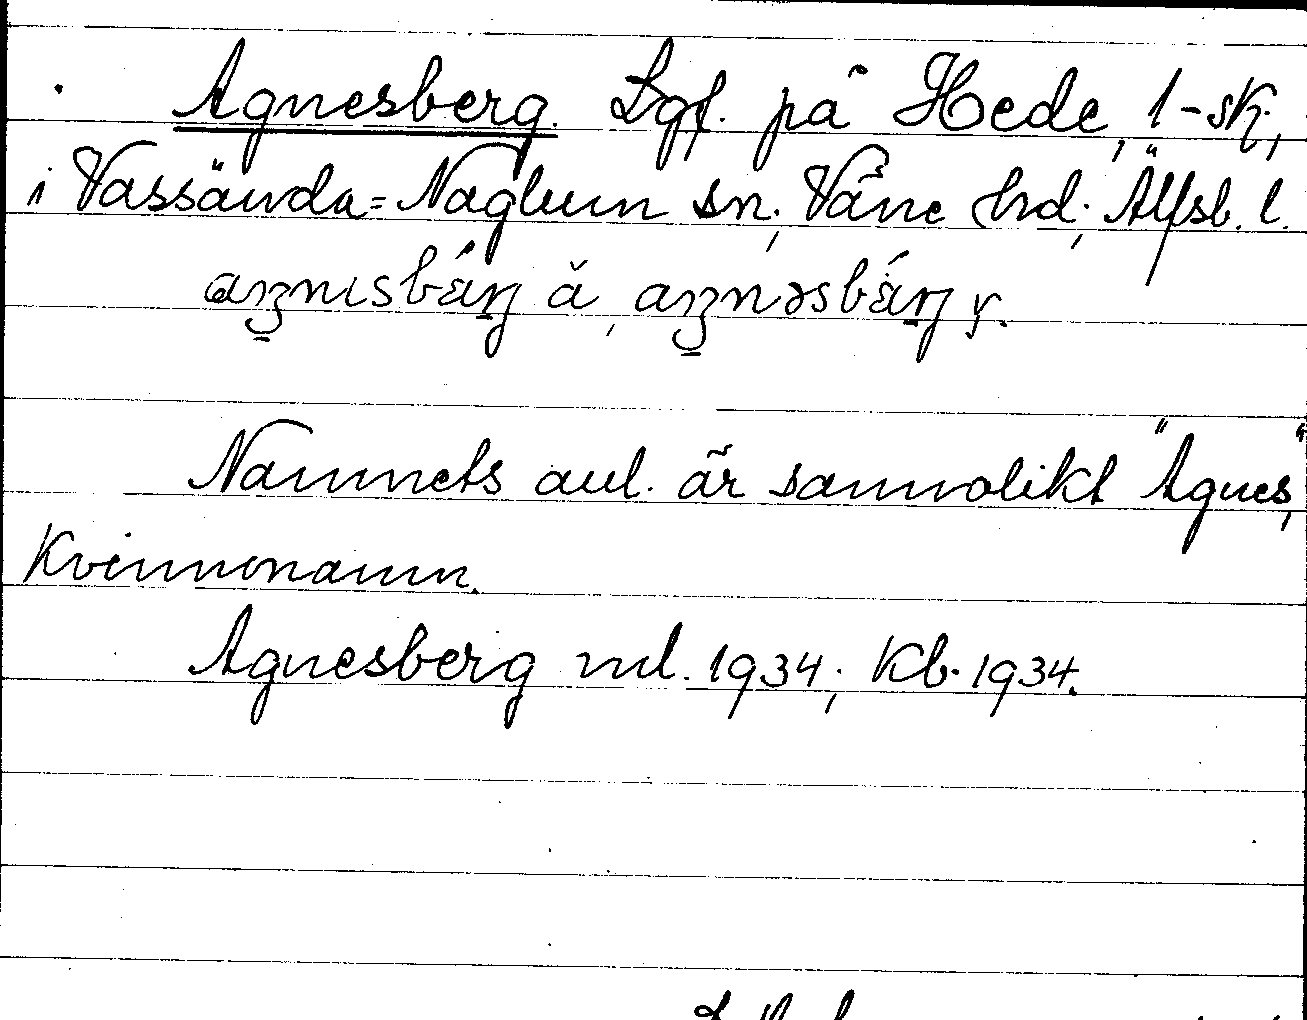 Agnesberg. Lgf. på Hede, 1-sk.,
i Vassända=Naglum sn; Våne hd; Älfsb. l.
Namnets anl. är sannolikt "Agnes",
Kvinnonamn.
Agnesberg ml. 1934; Kb. 1934.